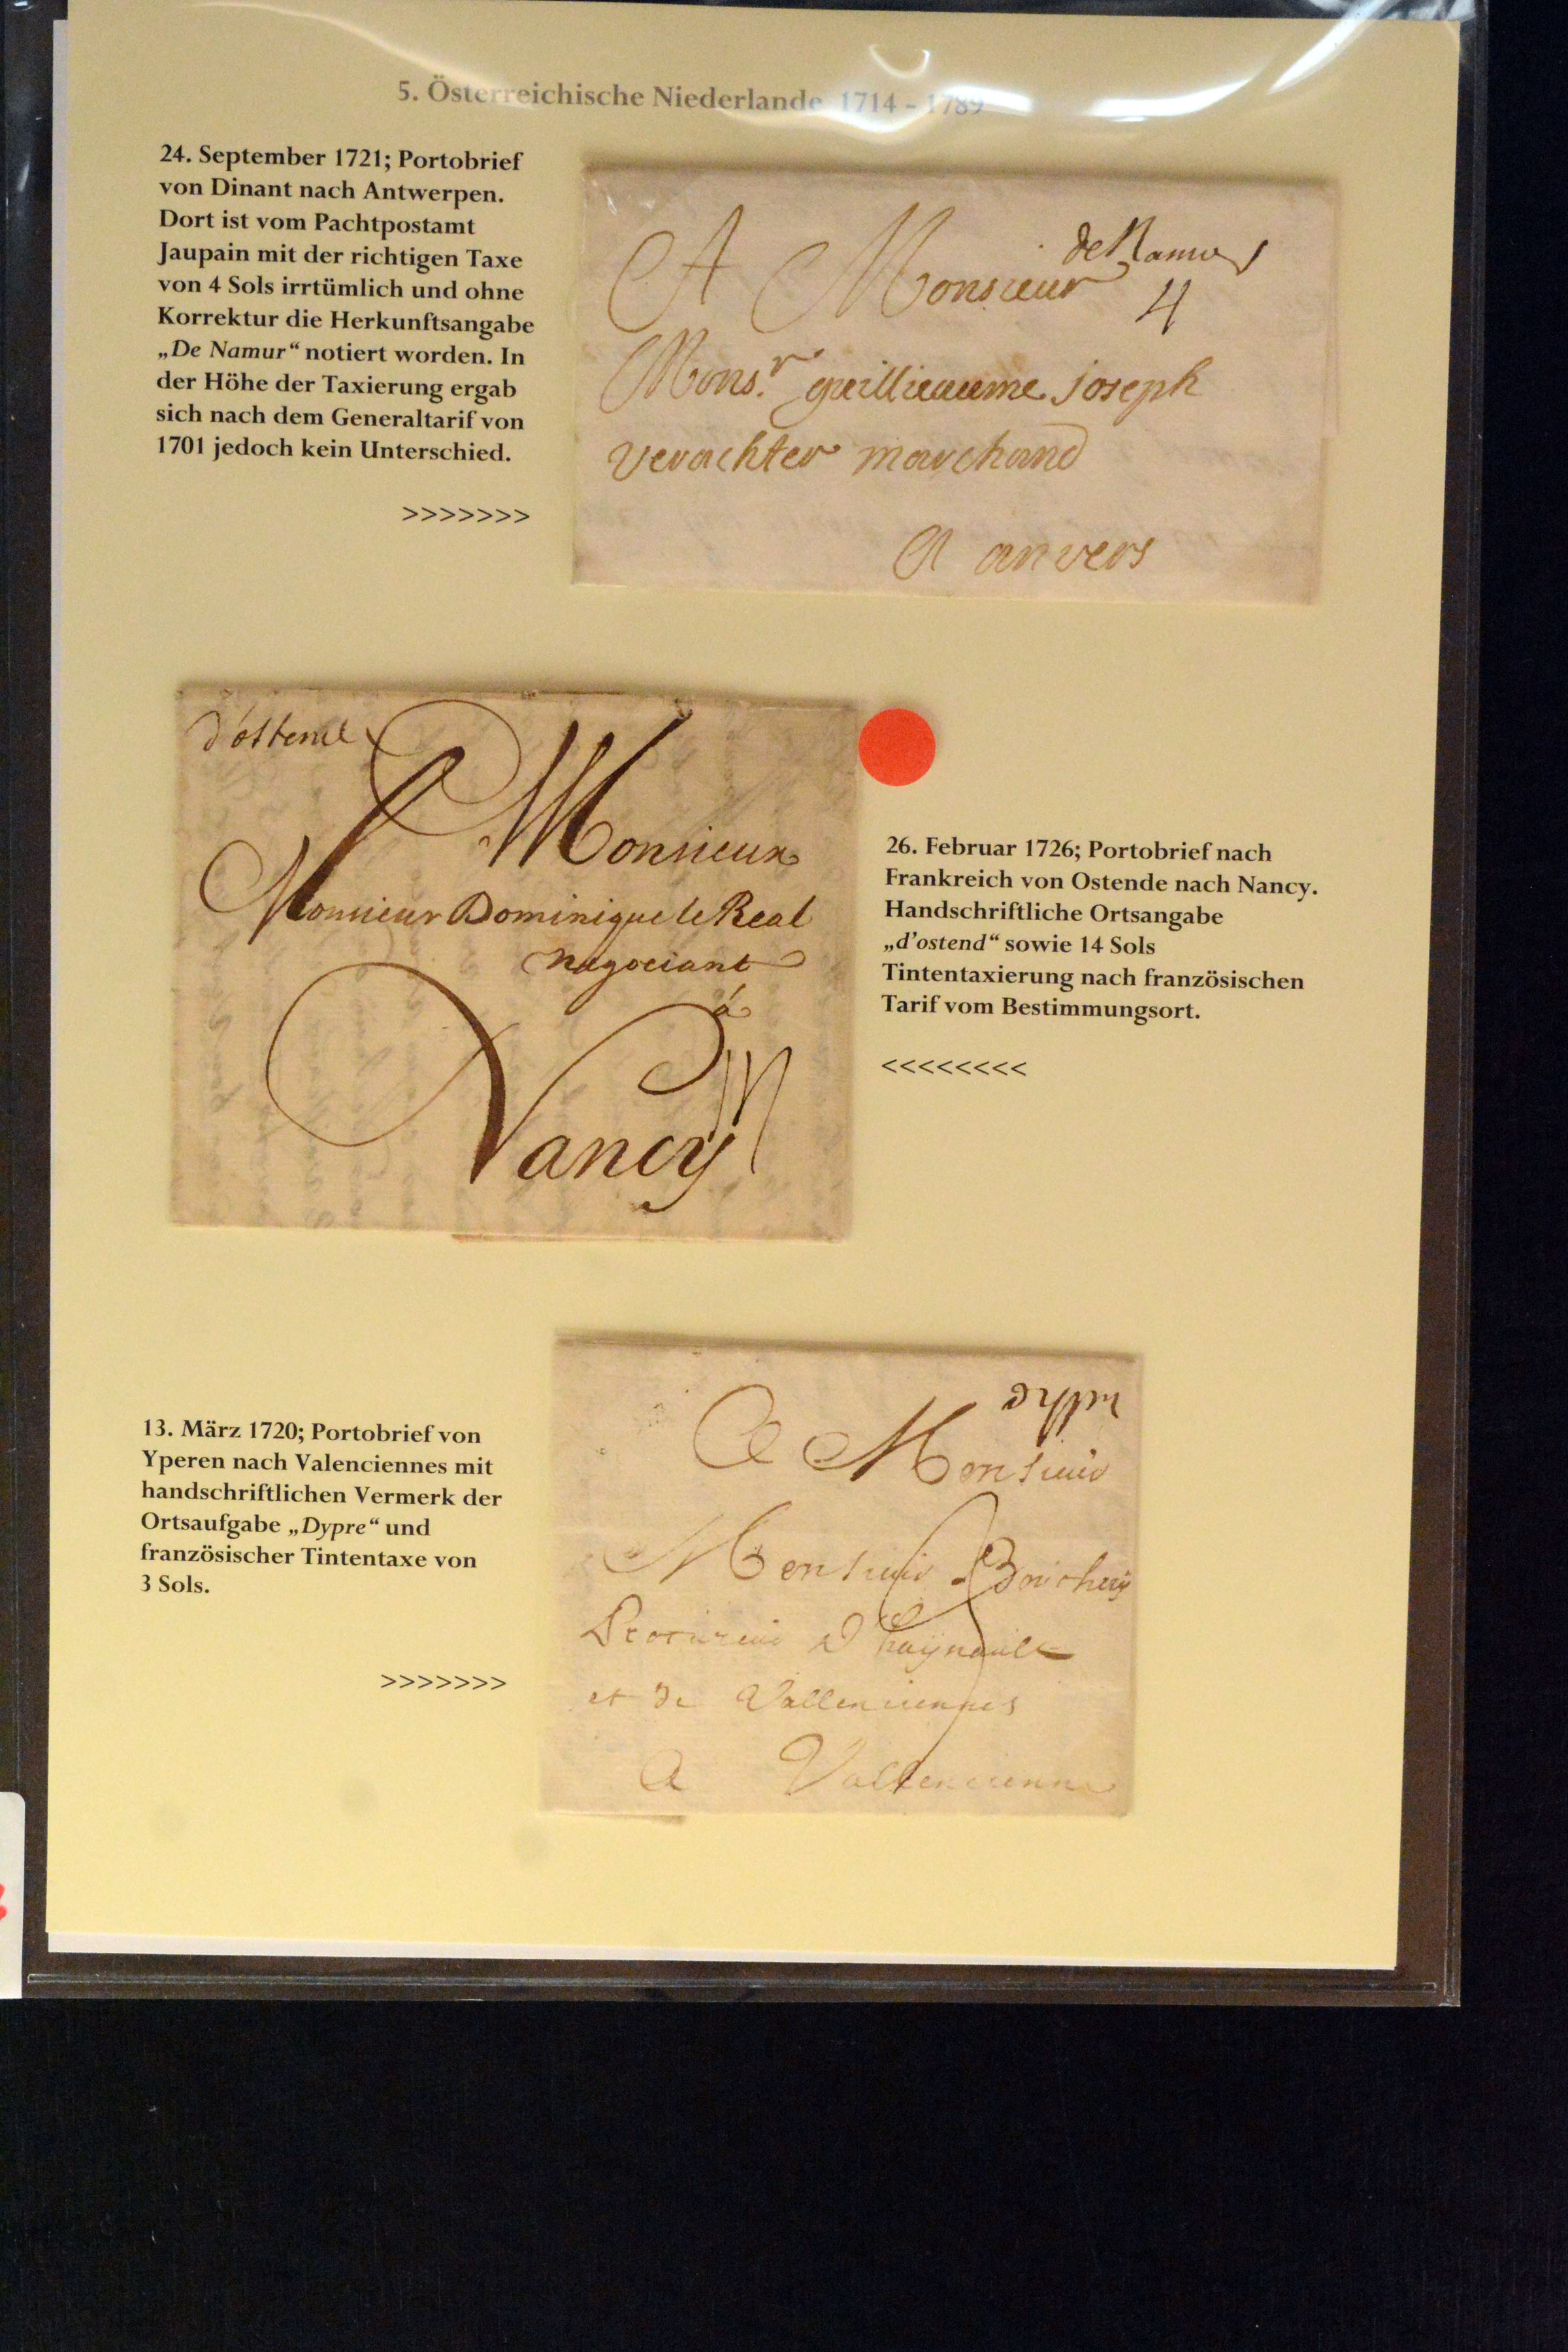 5. Österreichische Niederlande 1714 – 1789
24. September 1721; Portobrief
von Dinant nach Antwerpen.
Dort ist vom Pachtpostamt
Jaupain mit der richtigen Taxe
von 4 Sols irrtümlich und ohne
Korrektur die Herkunftsangabe
„De Namur“ notiert worden. In
der Höhe der Taxierung ergab
sich nach dem Generaltarif von
1701 jedoch kein Unterschied.
>>>>>>>
de Namur
A Monsieur
4
Mons.r guillieaume joseph
verachter marchand
A anvers
d'ostend
A Monsieur
Monsieur Dominique le Real
negociant
à
Nancy
26. Februar 1726; Portobrief nach
Frankreich von Ostende nach Nancy.
Handschriftliche Ortsangabe
„d’ostend“ sowie 14 Sols
Tintentaxierung nach französischen
Tarif vom Bestimmungsort.
<<<<<<<<
13. März 1720; Portobrief von
Yperen nach Valenciennes mit
handschriftlichen Vermerk der
Ortsaufgabe „Dypre“ und
französischer Tintentaxe von
3 Sols.
>>>>>>>
dypre
A Monsieur
Monsieur
Procureur d'haynault
et de Vallenciennes
A Vallencienne